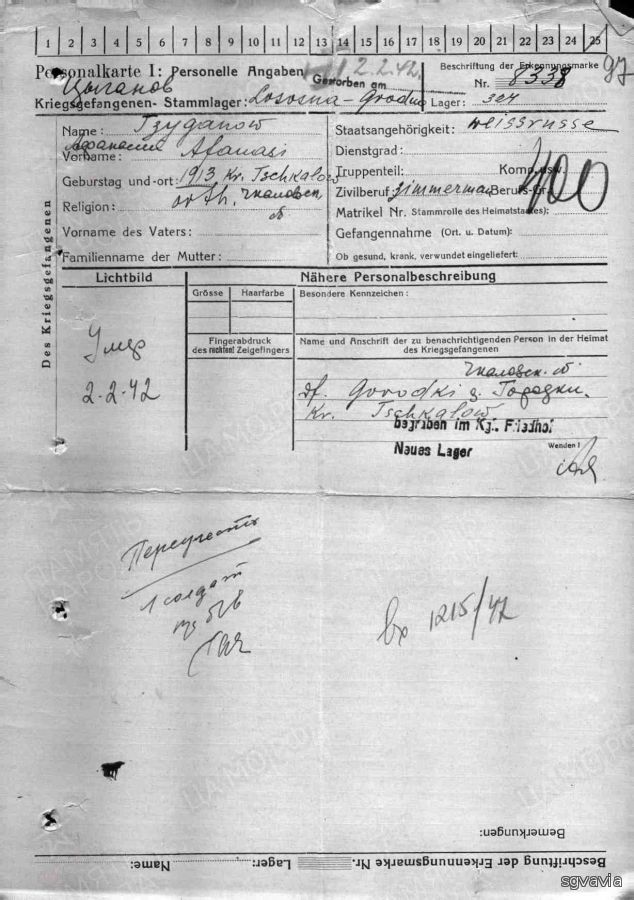 1 2 3 4 5 6 7 8 9 10 11 12 13 14 15 16 17 18 19 20 21 22 23 24 25
Personalkarte I: Personelle Angaben
Gestorben am 2.2.42.
Beschriftung der Erkennungsmarke
Nr. 8338
Цыганов
Kriegsgefangenen- Stammlager: Lososna-Grodno
Lager: 324
Des Kriegsgefangenen
Name: Tzyganow
Афанасий
Vorname: Afanasi
Geburtstag und -ort: 1913 Kr. Tschkalow
Чкаловск. об
Religion: orth.
Vorname des Vaters:
Familienname der Mutter:
Staatsangehörigkeit: Weissrusse
Dienstgrad:
Truppenteil: Komp. usw.
Zivilberuf: Zimmerman Berufs-Gr.
Matrikel Nr. (Stammrolle des Heimatstaates):
Gefangennahme (Ort. u. Datum):
Ob gesund, krank, verwundet eingeliefert:
Lichtbild
Умер
2-2-42
Nähere Personalbeschreibung
Grösse Haarfarbe Besondere Kennzeichen:
Fingerabdruck
des rechten! Zeigefingers
Name und Anschrift der zu benachrichtigenden Person in der Heimat
des Kriegsgefangenen
Чкаловск. об
df. Gorodki д. Городки.
Kr. Tschkalow
begraben im Kg. Friedhof
Neues Lager
Wenden!
Переучесть
1 солдат
вх 1215/42
Bemerkungen:
Beschriftung der Erkennungsmarke Nr. Lager: Name:
ПАМЯТЬ НАРОДА
sgvavia